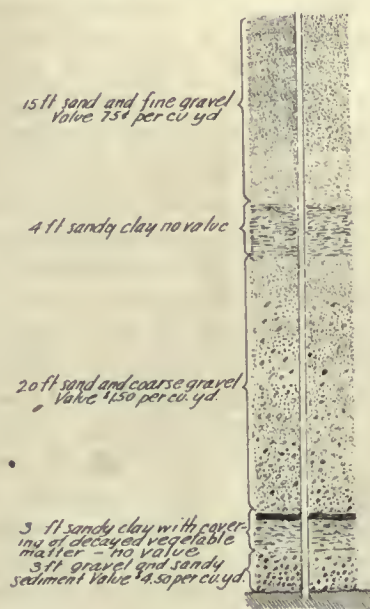 15 ft sand and fine gravel
Value 75¢ per cu yd
4 ft sandy clay no value
20 ft sand and coarse gravel
Value $1.50 per cu. yd.
3 ft sandy clay with cover-
ing of decayed vegetable
matter – no value
3 ft gravel and sandy
sediment Value $4.50 per cu.yd.